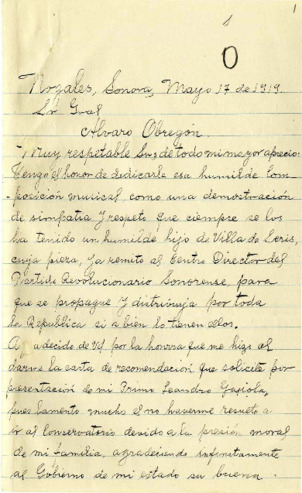 1
1
0
Nogales, Sonora, Mayo 17 de 1919.
Sr Gral
Alvaro Obregón.
Muy respetable Snr de todo mi mayor aprecio:
Tengo el honor de dedicarle esa humilde com-
posición musical como una demostración
de simpatía y respeto que ciempre se los
ha tenido un humilde hijo de Villa de Seris,
cuja pieza, ya remito al Centro Director del
Partido Revolucionario Sonorense, para
que se propague y distribuya por toda
la Republica si a bien lo tienen ellos.
Agradecido de Vd. por la honrra que me hizo al
darme la carta de recomendación que solicité por
presentación de mi Primo Leandro Gaxiola,
pues lamento mucho el no haverme resuelto a
ir al Conservatorio devido a la presión moral
de mi familia, agradeciendo infinitamente
al Gobierno de mi estado su buena